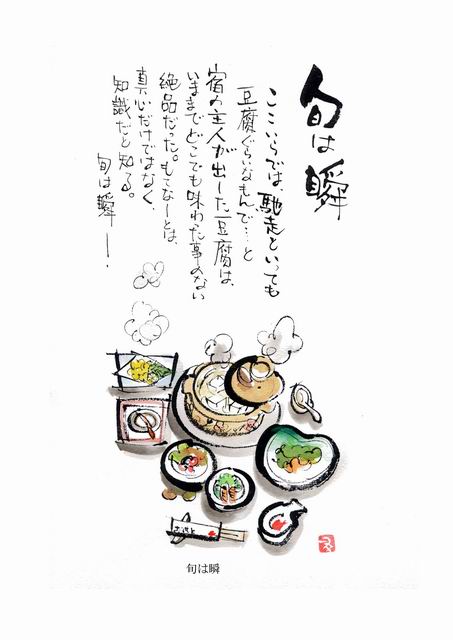 旬は瞬
ここいらでは、馳走といっても
豆腐ぐらいなもんで…と
宿の主人が出した豆腐は、
いままでどこでも味わった事のない
絶品だった。もてなしとは、
真心だけではなく、
知識だと知る。
旬は瞬―
旬は瞬